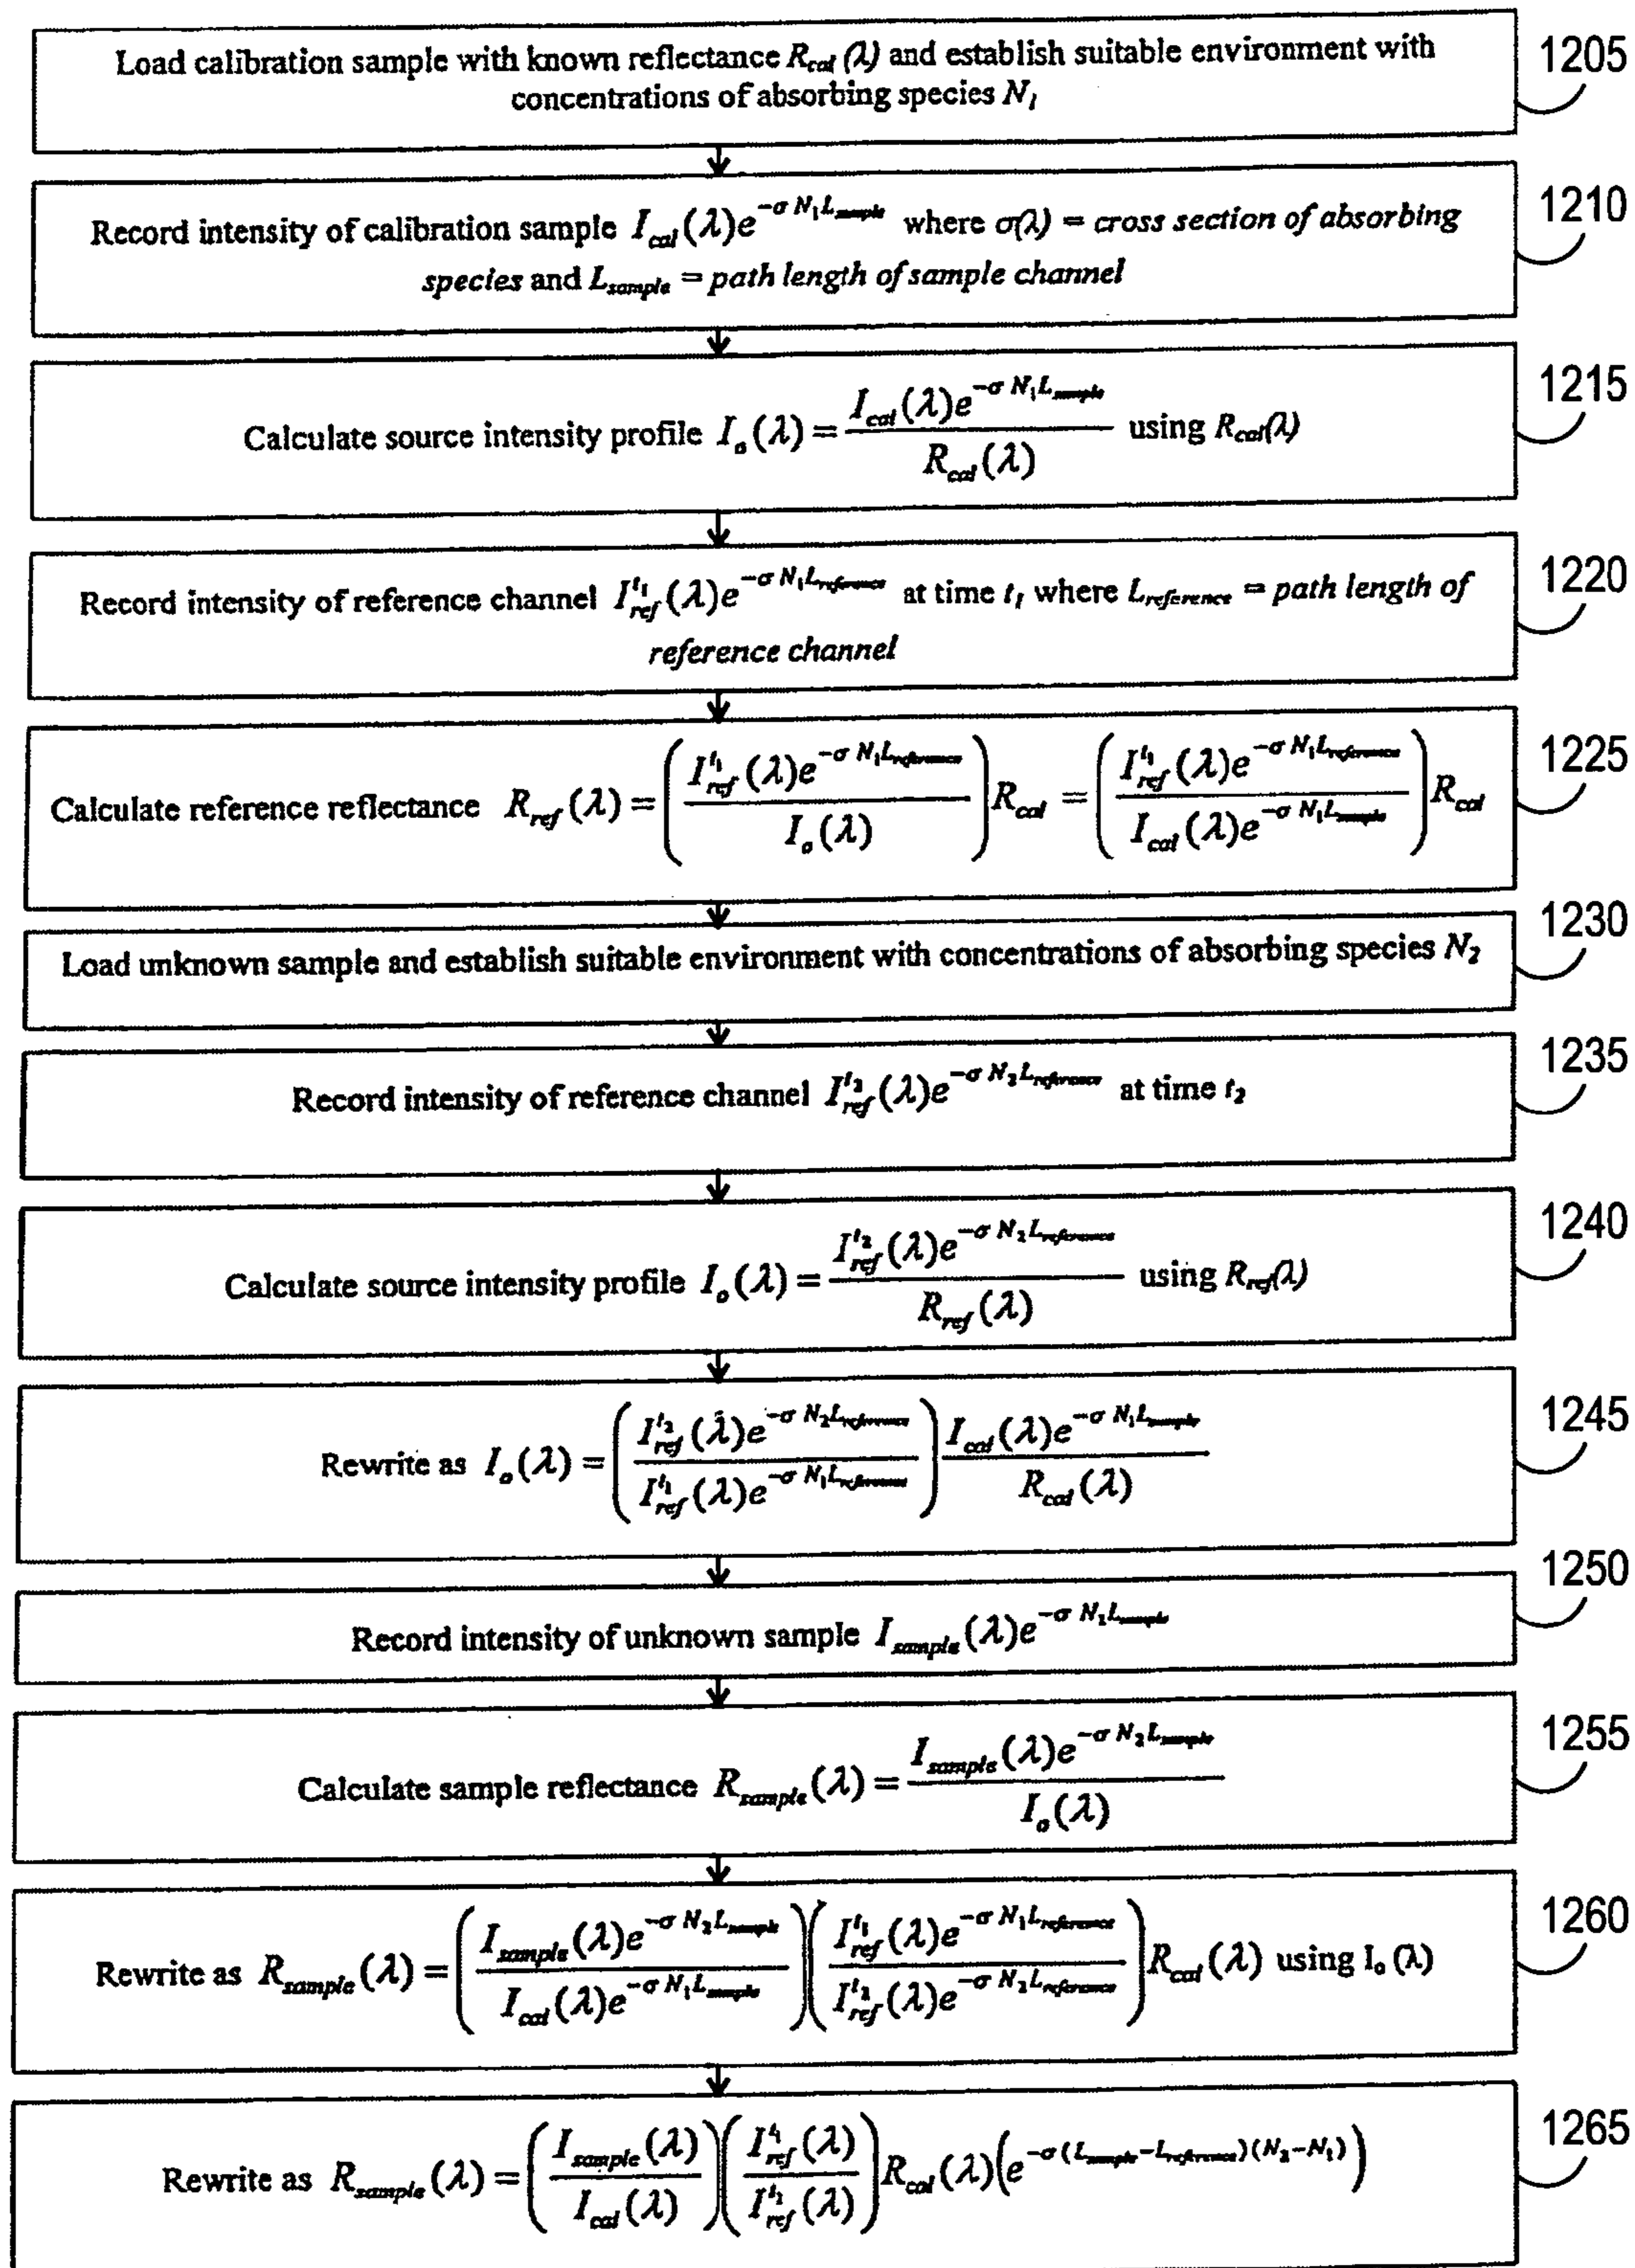 Load calibration sample with known reflectance R_cal (λ) and establish suitable environment with
concentrations of absorbing species N_1
1205
Record intensity of calibration sample I_cal(λ)e^{-σ N_1 L_sample} where σ(λ) = cross section of absorbing
species and L_sample = path length of sample channel
1210
Calculate source intensity profile I_o(λ) = I_cal(λ)e^{-σ N_1 L_sample} / R_cal(λ) using R_cal(λ)
1215
Record intensity of reference channel I_ref^{t_1}(λ)e^{-σ N_1 L_reference} at time t_1 where L_reference = path length of
reference channel
1220
Calculate reference reflectance R_ref(λ) = (I_ref^{t_1}(λ)e^{-σ N_1 L_reference} / I_o(λ)) R_cal = (I_ref^{t_1}(λ)e^{-σ N_1 L_reference} / I_cal(λ)e^{-σ N_1 L_sample}) R_cal
1225
Load unknown sample and establish suitable environment with concentrations of absorbing species N_2
1230
Record intensity of reference channel I_ref^{t_2}(λ)e^{-σ N_2 L_reference} at time t_2
1235
Calculate source intensity profile I_o(λ) = I_ref^{t_2}(λ)e^{-σ N_2 L_reference} / R_ref(λ) using R_ref(λ)
1240
Rewrite as I_o(λ) = (I_ref^{t_2}(λ)e^{-σ N_2 L_reference} / I_ref^{t_1}(λ)e^{-σ N_1 L_reference}) I_cal(λ)e^{-σ N_1 L_sample} / R_cal(λ)
1245
Record intensity of unknown sample I_sample(λ)e^{-σ N_2 L_sample}
1250
Calculate sample reflectance R_sample(λ) = I_sample(λ)e^{-σ N_2 L_sample} / I_o(λ)
1255
Rewrite as R_sample(λ) = (I_sample(λ)e^{-σ N_2 L_sample} / I_cal(λ)e^{-σ N_1 L_sample})(I_ref^{t_1}(λ)e^{-σ N_1 L_reference} / I_ref^{t_2}(λ)e^{-σ N_2 L_reference}) R_cal(λ) using I_o (λ)
1260
Rewrite as R_sample(λ) = (I_sample(λ) / I_cal(λ))(I_ref^{t_1}(λ) / I_ref^{t_2}(λ)) R_cal(λ)(e^{-σ (L_sample-L_reference)(N_2-N_1)})
1265